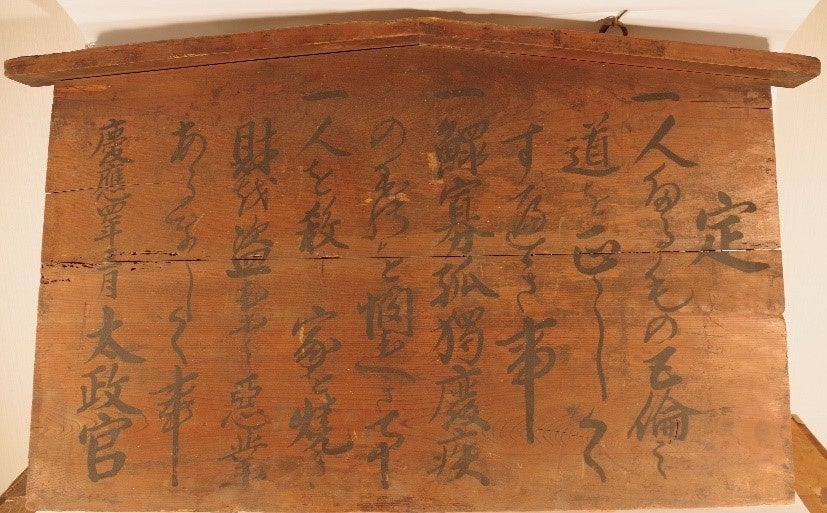 定
一人たるもの五倫之
道を正しく
すへき事
一鰥寡孤獨廢疾
のものを憫むへき事
一人を殺し家を焼き
財を盗む等之惡業
あるましく事
慶應四年三月 太政官